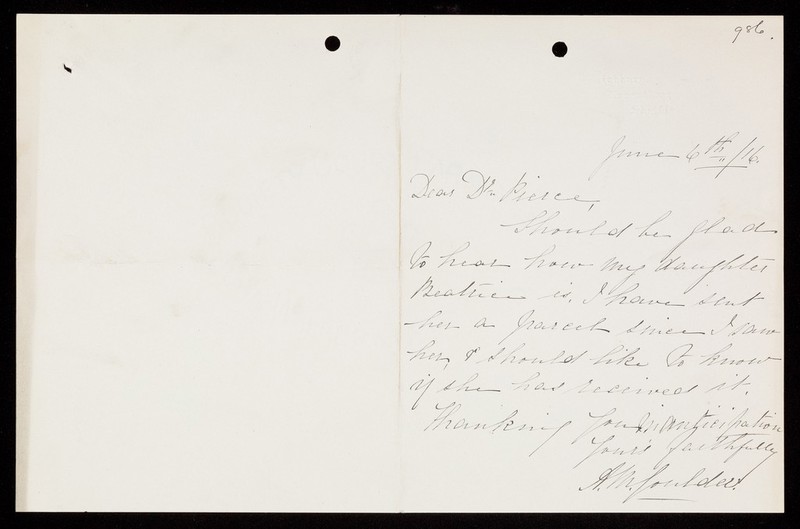 986.
June 6th/16.
Dear Dr. Pierce,
Should be glad
to hear how my daughter
Beatrice is. I have sent
her a parcel since I saw
her, & should like to know
if she has received it.
Thanking you in anticipation
Yours faithfully
A. M.